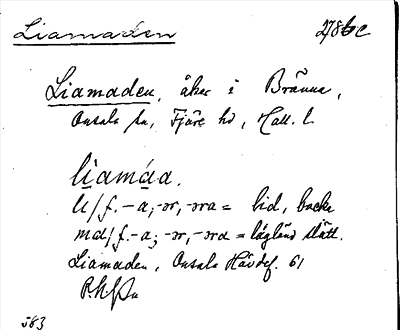 Liamaden 278bc
Liamaden, åker i Bränna,
Onsala sn, Fjäre hd, Hall. l.
liamáa.
li/f. -a; -ər, -əra = lid, backe
mad/f. -a; -ər, -əra = lågländ slätt.
Liamaden, Onsala Hävdef. 61
583